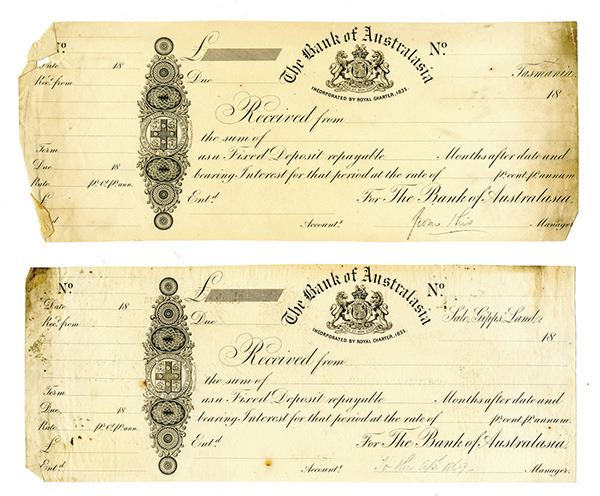 Nº
Date 18
Rec.d from
Term
Due 18
Rate p.r C.t p.r ann.
£
£
Due
The Bank of Australasia
INCORPORATED BY ROYAL CHARTER, 1835.
Nº
Tasmania
18
Received from
the sum of
as a Fixed Deposit repayable Months after date and
bearing Interest for that period at the rate of p.r cent. p.r annum.
Ent.d For The Bank of Australasia.
from this
Account.t Manager.
Nº
Date 18
Rec.d from
Term
Due 18
Rate p.r C.t p.r ann.
£
Ent.d
£
Due
The Bank of Australasia
INCORPORATED BY ROYAL CHARTER, 1835.
Nº
Sale, Gipps' Land,
18
Received from
the sum of
as a Fixed Deposit repayable Months after date and
bearing Interest for that period at the rate of p.r cent. p.r annum.
Ent.d For The Bank of Australasia.
Account.t Manager.